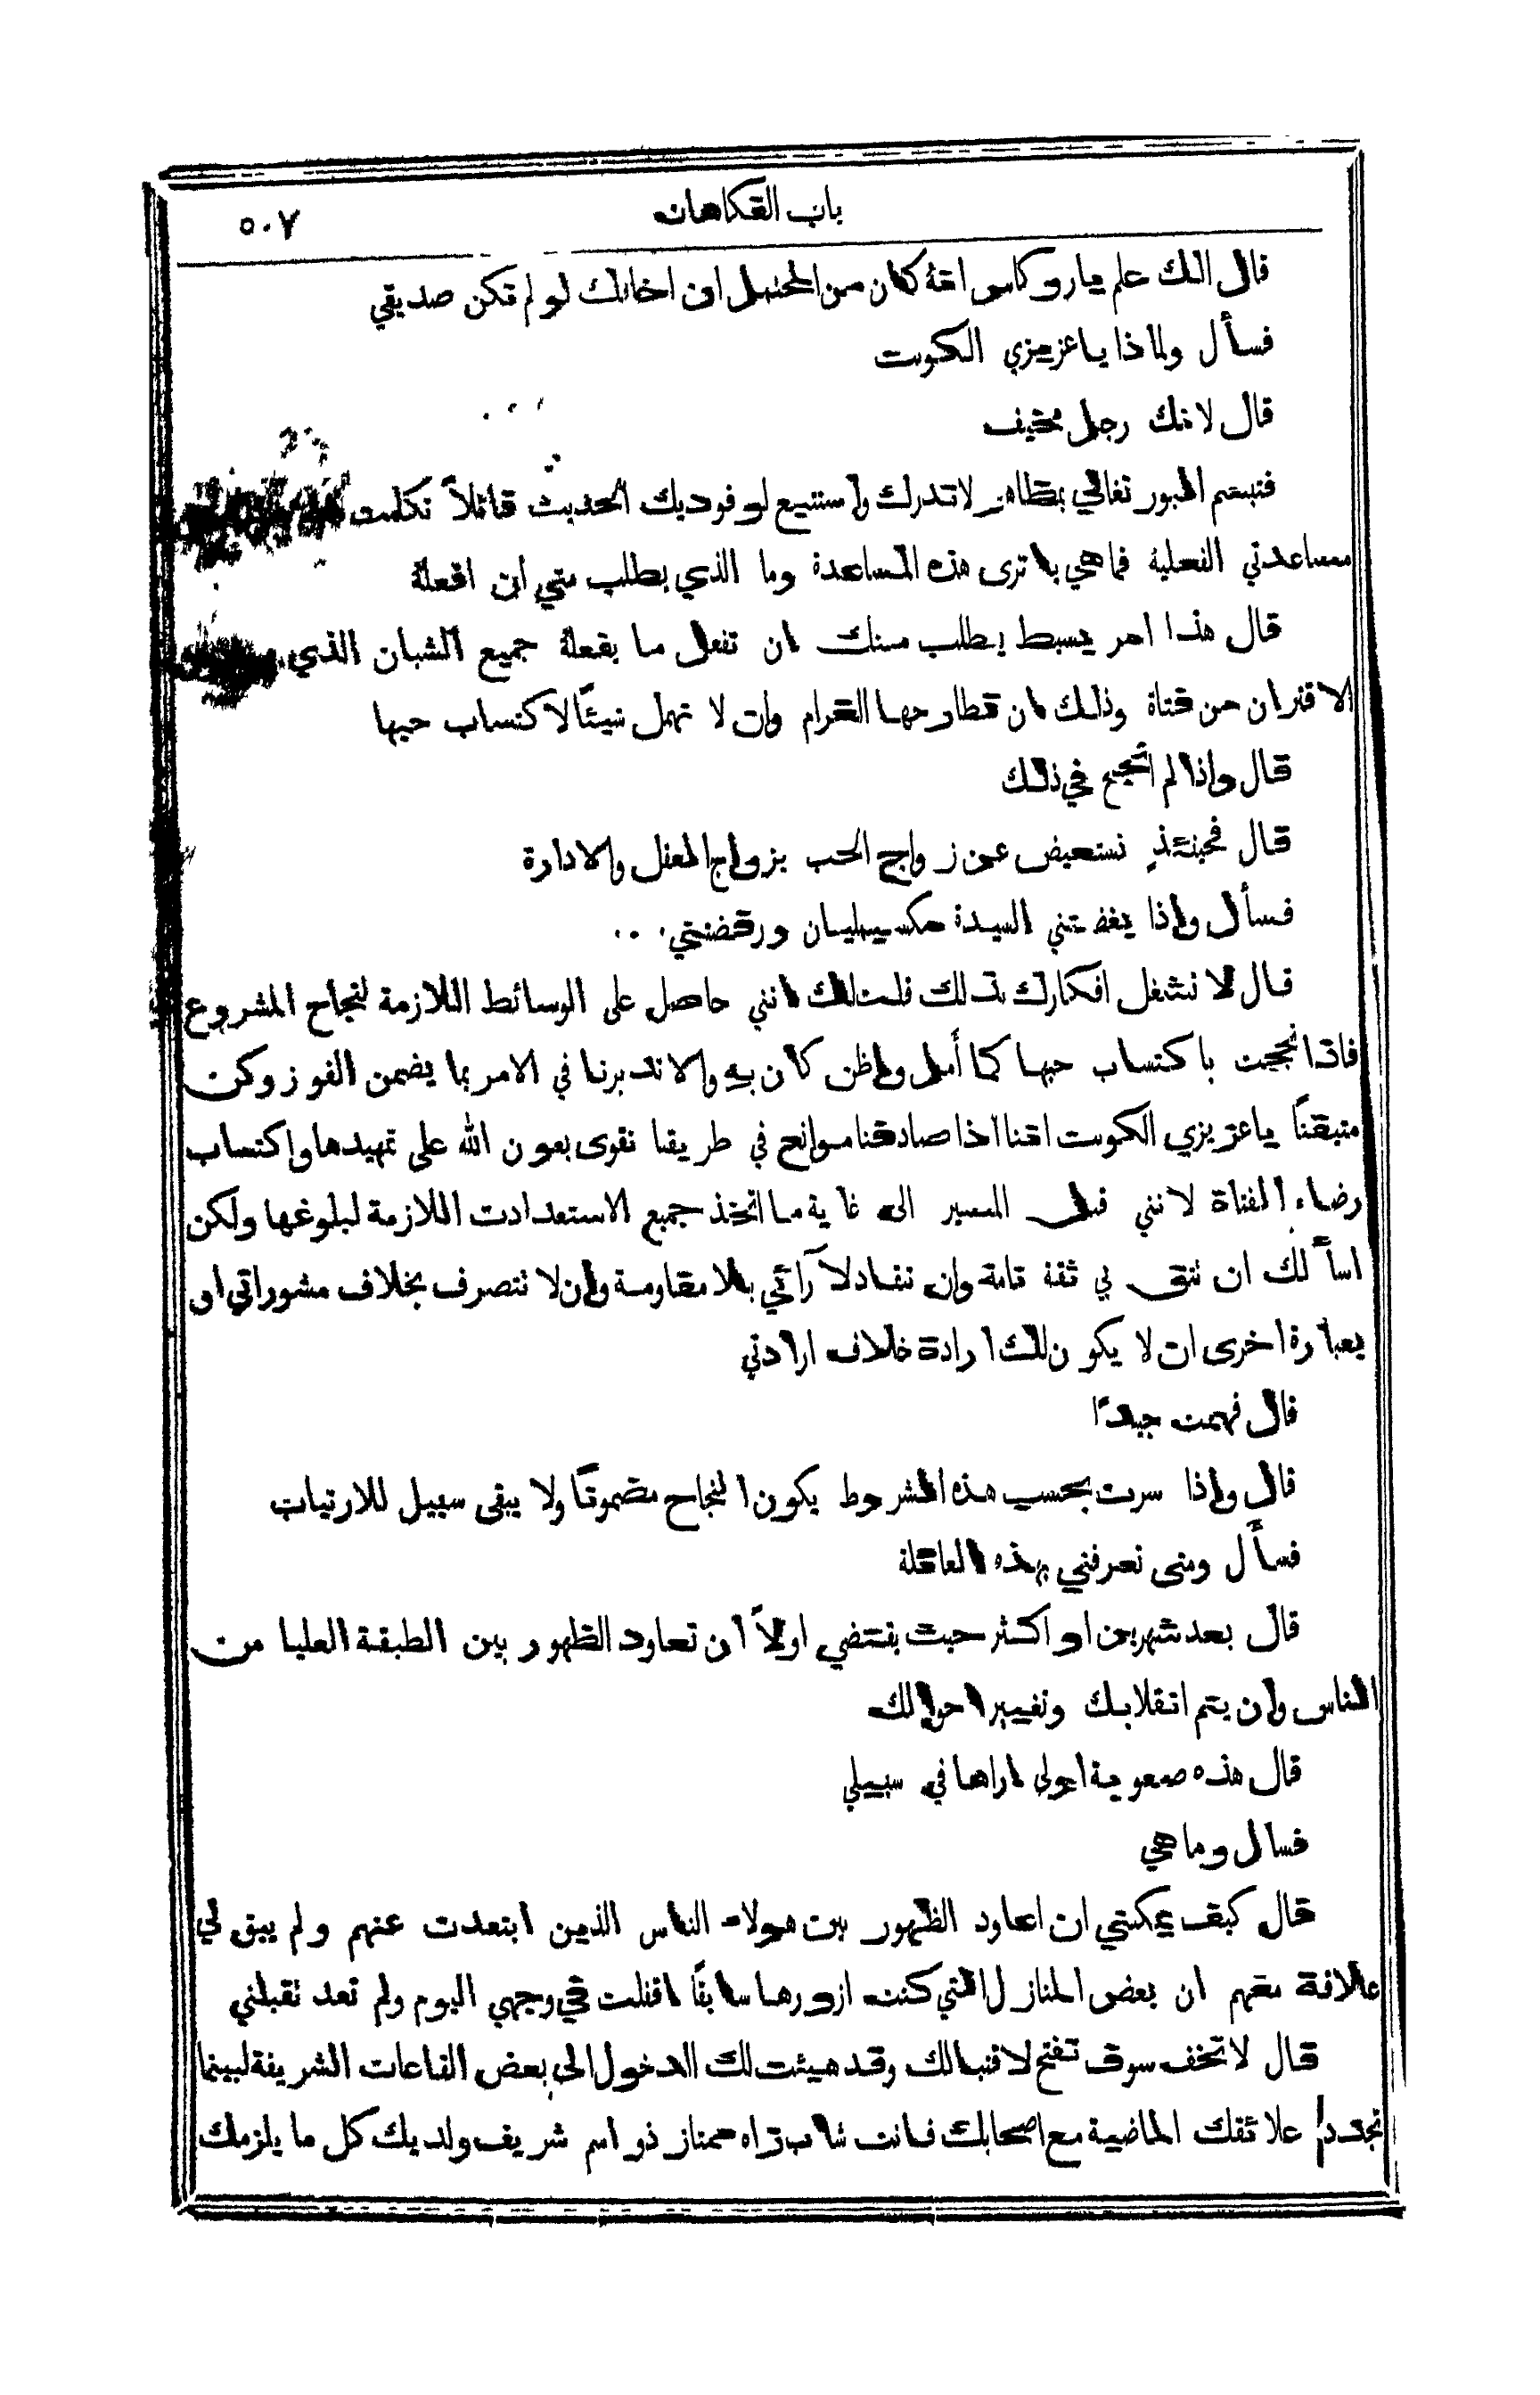 باب الفكاهات
٥٠٧
قال الك علم ياروكامبول انهُ كان من المحتمل ان اخافك لو لم تكن صديقي
فسأل ولماذا ياعزيزي الكونت
قال لانك رجل مخيف
فتبسم المبور تغالي بتظاهر لا تدرك واستتبع لوفوديك الحديث قائلاً تكلمت
مساعدتي الفعلية فما هي يا ترى هذه المساعدة وما الذي يطلب مني ان افعلهُ
قال هذا امر بسيط يطلب منك ان تفعل ما يفعلهُ جميع الشبان الذي
الاقتران من فتاة وذلك ان تطارحها الغرام وان لا تهمل شيئًا لاكتساب حبها
قال واذا لم انجح في ذلك
قال فحينئذٍ نستعيض عن زواج الحب بزواج العقل والادارة
فسأل واذا بغضتني السيدة مكسيمليان ورفضتني . . .
قال لا تشغل افكارك بذلك قلت لك انني حاصل على الوسائط اللازمة لنجاح المشروع
فاذا نجحت باكتساب حبها كما أمل واظن كان به والا تدبرنا في الامر بما يضمن الفوز وكن
متيقنًا ياعزيزي الكونت اننا اذا صادفنا موانع في طريقنا نقوى بعون الله على تمهيدها واكتساب
رضاء الفتاة لانني قبل المسير الى غاية ما اتخذ جميع الاستعدادت اللازمة لبلوغها ولكن
اسأ لك ان تثق بي ثقة تامة وان تنقاد لآرائي بلا مقاومة وان لا تتصرف بخلاف مشوراتي او
بعبارة اخرى ان لا يكون لك ارادة خلاف ارادتي
قال فهمت جيدًا
قال واذا سرت بحسب هذه الشروط يكون النجاح مضمونًا ولا يبقى سبيل للارتياب
فسأل ومتى تعرفني بهذه العائلة
قال بعد شهرين او اكثر حيث يقتضي اولاً ان تعاود الظهور بين الطبقة العليا من
الناس وان يتم انقلابك وتغيير احوالك
قال هذه صعوبة اولى اراها في سبيلي
فسال وما هي
قال كيف يمكنني ان اعاود الظهور بين هولاء الناس الذين ابتعدت عنهم ولم يبق لي
علاقة معهم ان بعض المنازل التي كنت ازورها سابقًا اقفلت في وجهي اليوم ولم تعد تقبلني
قال لا تخف سوف تفتح لاقتبالك وقد هيئت لك الدخول الى بعض القاعات الشريفة لبينما
تجدد علائقك الماضية مع اصحابك فانت شاب تراه ممتاز ذو اسم شريف ولديك كل ما يلزمك